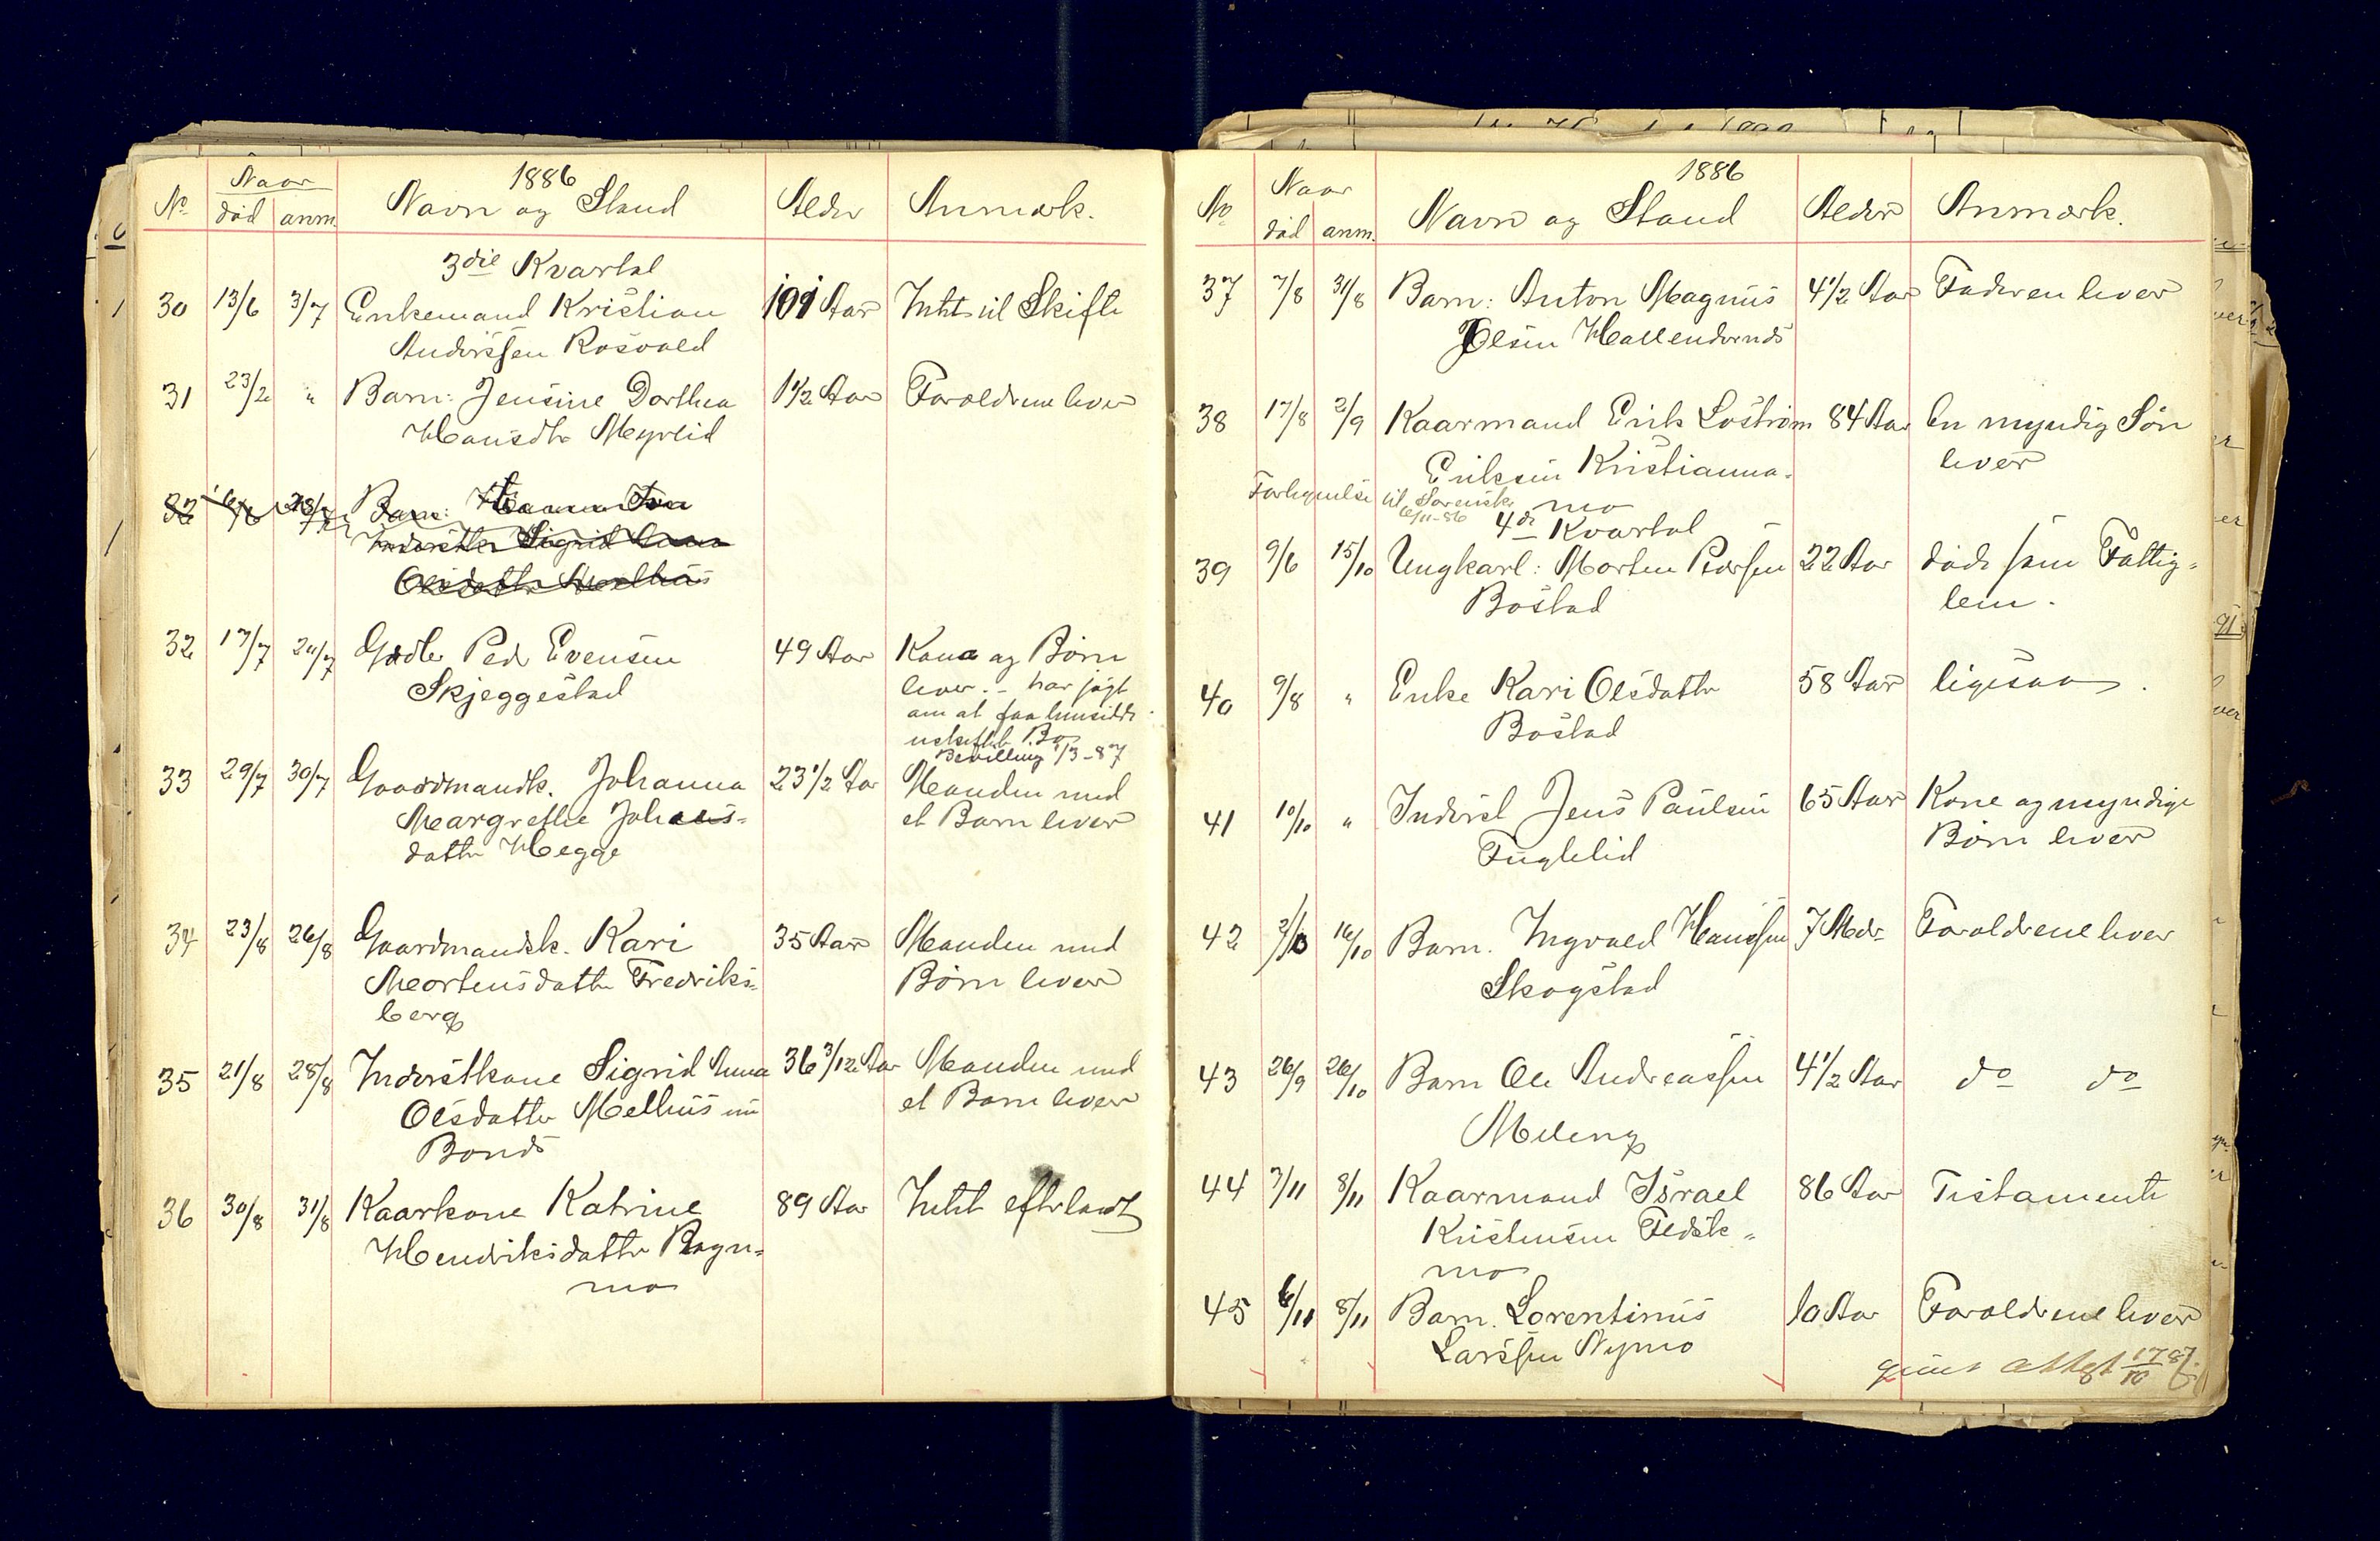 1886
No Naar Navn og Stand Alder Anmærk.
død anm.
3die Kvartal
30 13/6 3/7 Enkemand Kristian 101 Aar Intet til Skifte
Anderssen Rosvold
31 23/2 " Barn: Jensine Dorthea 1 1/2 Aar Forældrene lever
Hansdtr Myrlid
32 23/7 Barn:
Inderster Sigrid Anna
Olsdatter Melhus
32 17/7 24/7 Gdbr Peder Evensen 49 Aar Kona og Børn
Skjeggestad lever. - har søgt
om at faa hensidde
uskiftet Bo
Bevilling 1/3-87
33 29/7 30/7 Gaardmandsk. Johanna 23 1/2 Aar Manden med
Margrethe Johans- et Barn lever
datter Hegge
34 23/8 26/8 Gaardmandsk. Kari 35 Aar Manden med
Mortensdatter Fredriks- Børn lever
berg
35 21/8 28/8 Inderstkone Sigrid Anna 36 3/12 Aar Manden med
Olsdatter Melhus et Barn lever
36 30/8 31/8 Kaarkone Katrine 89 Aar Intet efterladt
Hendriksdatter Rogn-
mo
1886
No Naar Navn og Stand Alder Anmærk.
død anm.
37 7/8 31/8 Barn: Anton Magnus 4 1/2 Aar Faderen lever
Olsen
38 17/8 2/9 Kaarmand Erik 84 Aar En myndig Søn
Eriksen Kristianna- lever
mo
til Sorensk.
6/11-86
4de Kvartal
39 9/6 15/10 Ungkarl: Morten Pedersen 22 Aar døde som Fattig-
Bostad lem.
40 9/8 " Enke Kari Olsdatter 58 Aar ligesaa.
Bostad
41 10/10 " Inderst Jens Paulsen 65 Aar Kone og myndige
Fuglelid Børn lever
42 2/10 16/10 Barn. Ingvald Hanssen 7 Mdr Forældrene lever
Skogstad
43 26/9 26/10 Barn Ole Andreassen 4 1/2 Aar do do
Moeng
44 3/11 8/11 Kaarmand Israel 86 Aar Testamente
Kristensen
mo
45 6/11 8/11 Barn. Lorentinus 10 Aar Forældrene lever
Larssen Nymo